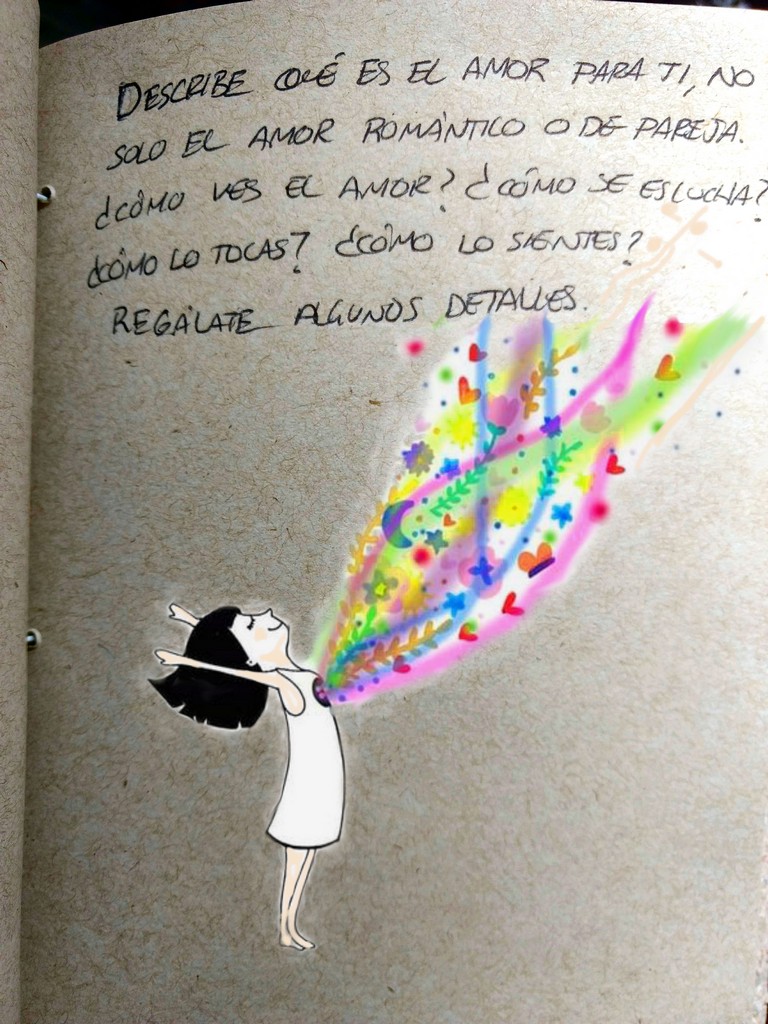 DESCRIBE QUÉ ES EL AMOR PARA TI, NO
SOLO EL AMOR ROMÁNTICO O DE PAREJA.
¿CÓMO VES EL AMOR? ¿CÓMO SE ESCUCHA?
¿CÓMO LO TOCAS? ¿CÓMO LO SIENTES?
REGÁLATE ALGUNOS DETALLES.